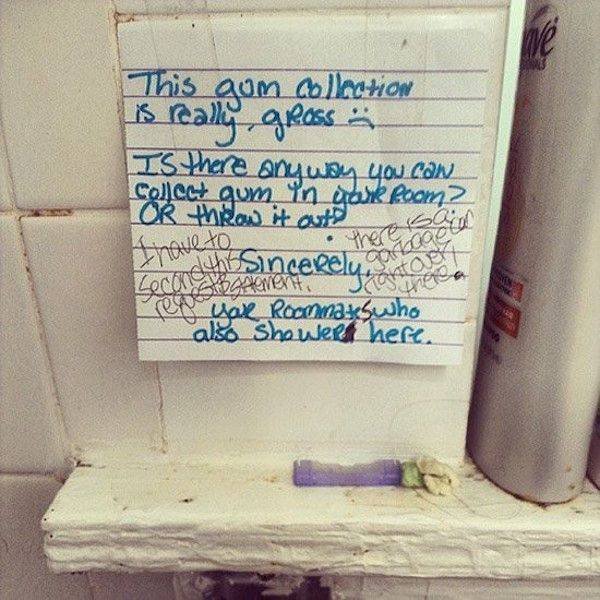 This gum collection
is really gross :(
Is there anyway you can
collect gum in your Room?
OR throw it out?
Sincerely,
your Roommates who
also shower here.
I have to
second this
request/statement.
there is a
garbage can
right over
there